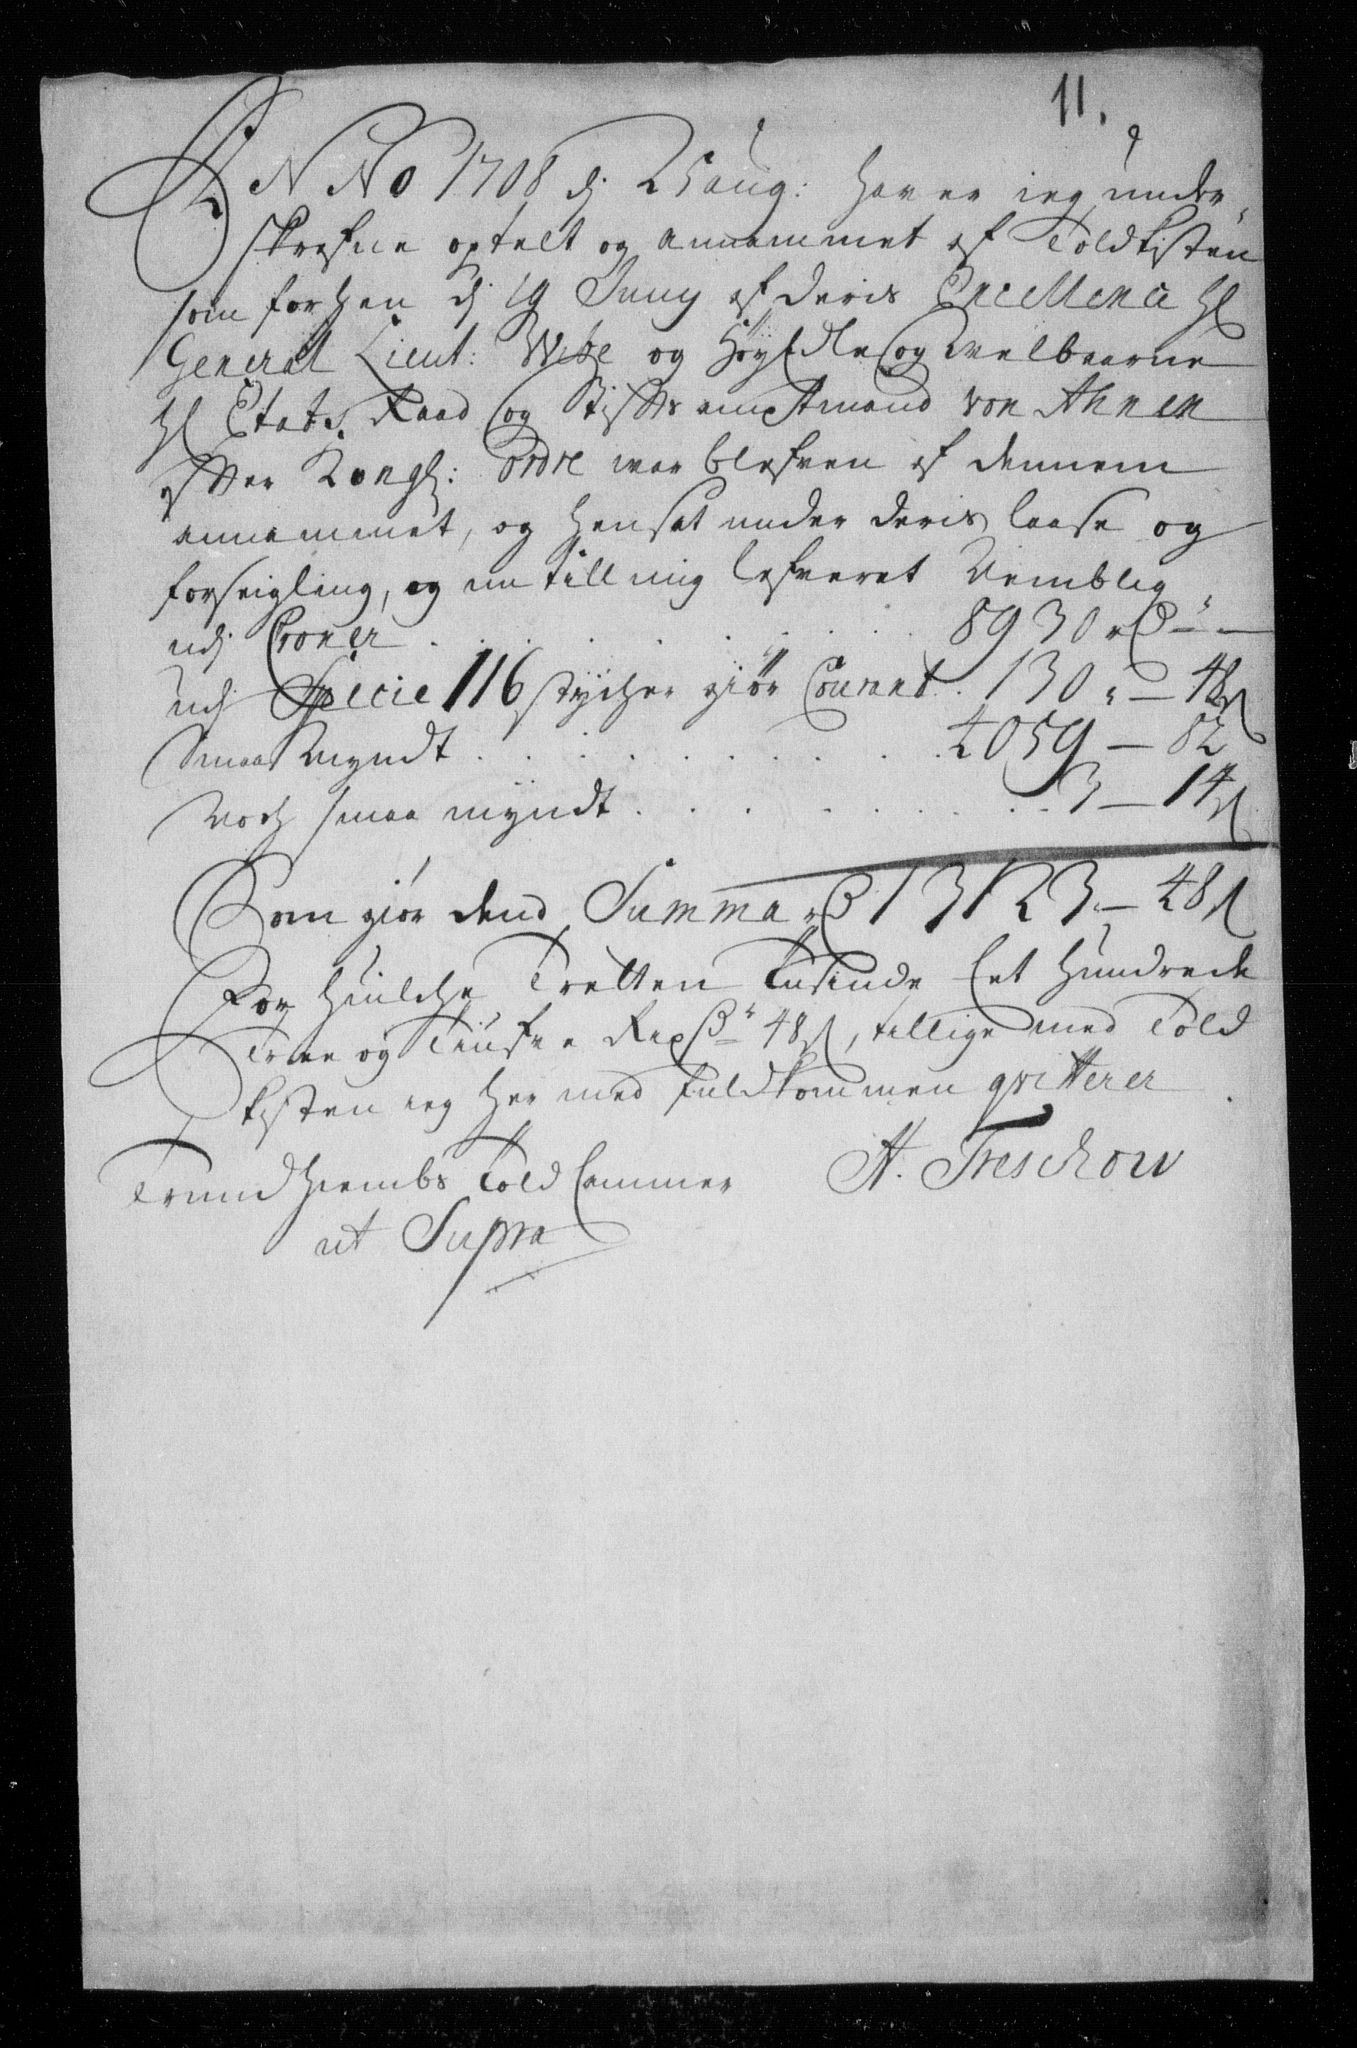 11.
ANNO 1708 dj 25 aug: haver ieg under-
skrefne optelt og annammet af Toldkisten
som forhen dj 19 Juny af deris Excellence Hl
General Lieut: Wibe og HøyEdle og Welbaarne
Hl Etats Raad og Stiftsamptmand von Ahnen
efter Kongl: Ordre war blefven af dennem
annammet, og hensat under deris laase og
forseigling, og nu till mig lefveret Nemblig
udj Croner . . . . . . . . 8930 rd — —
udj Specie 116 stycher giør Courant . 130 „ — 48 s
Smaa Myndt . . . . . . . . 4059 — 82
Noch smaa myndt . . . . . . . . 3 — 14 s
Som giør dend Summa rd 13123 — 48 s
For huilche Tretten Tusinde Eet Hundrede
Trae og Tiufve Rixdr 48 s, tillige med Told
kisten ieg her med fuldkommen qvitterer
Trundhiembs Told Cammer A. Treschow
ut Supra